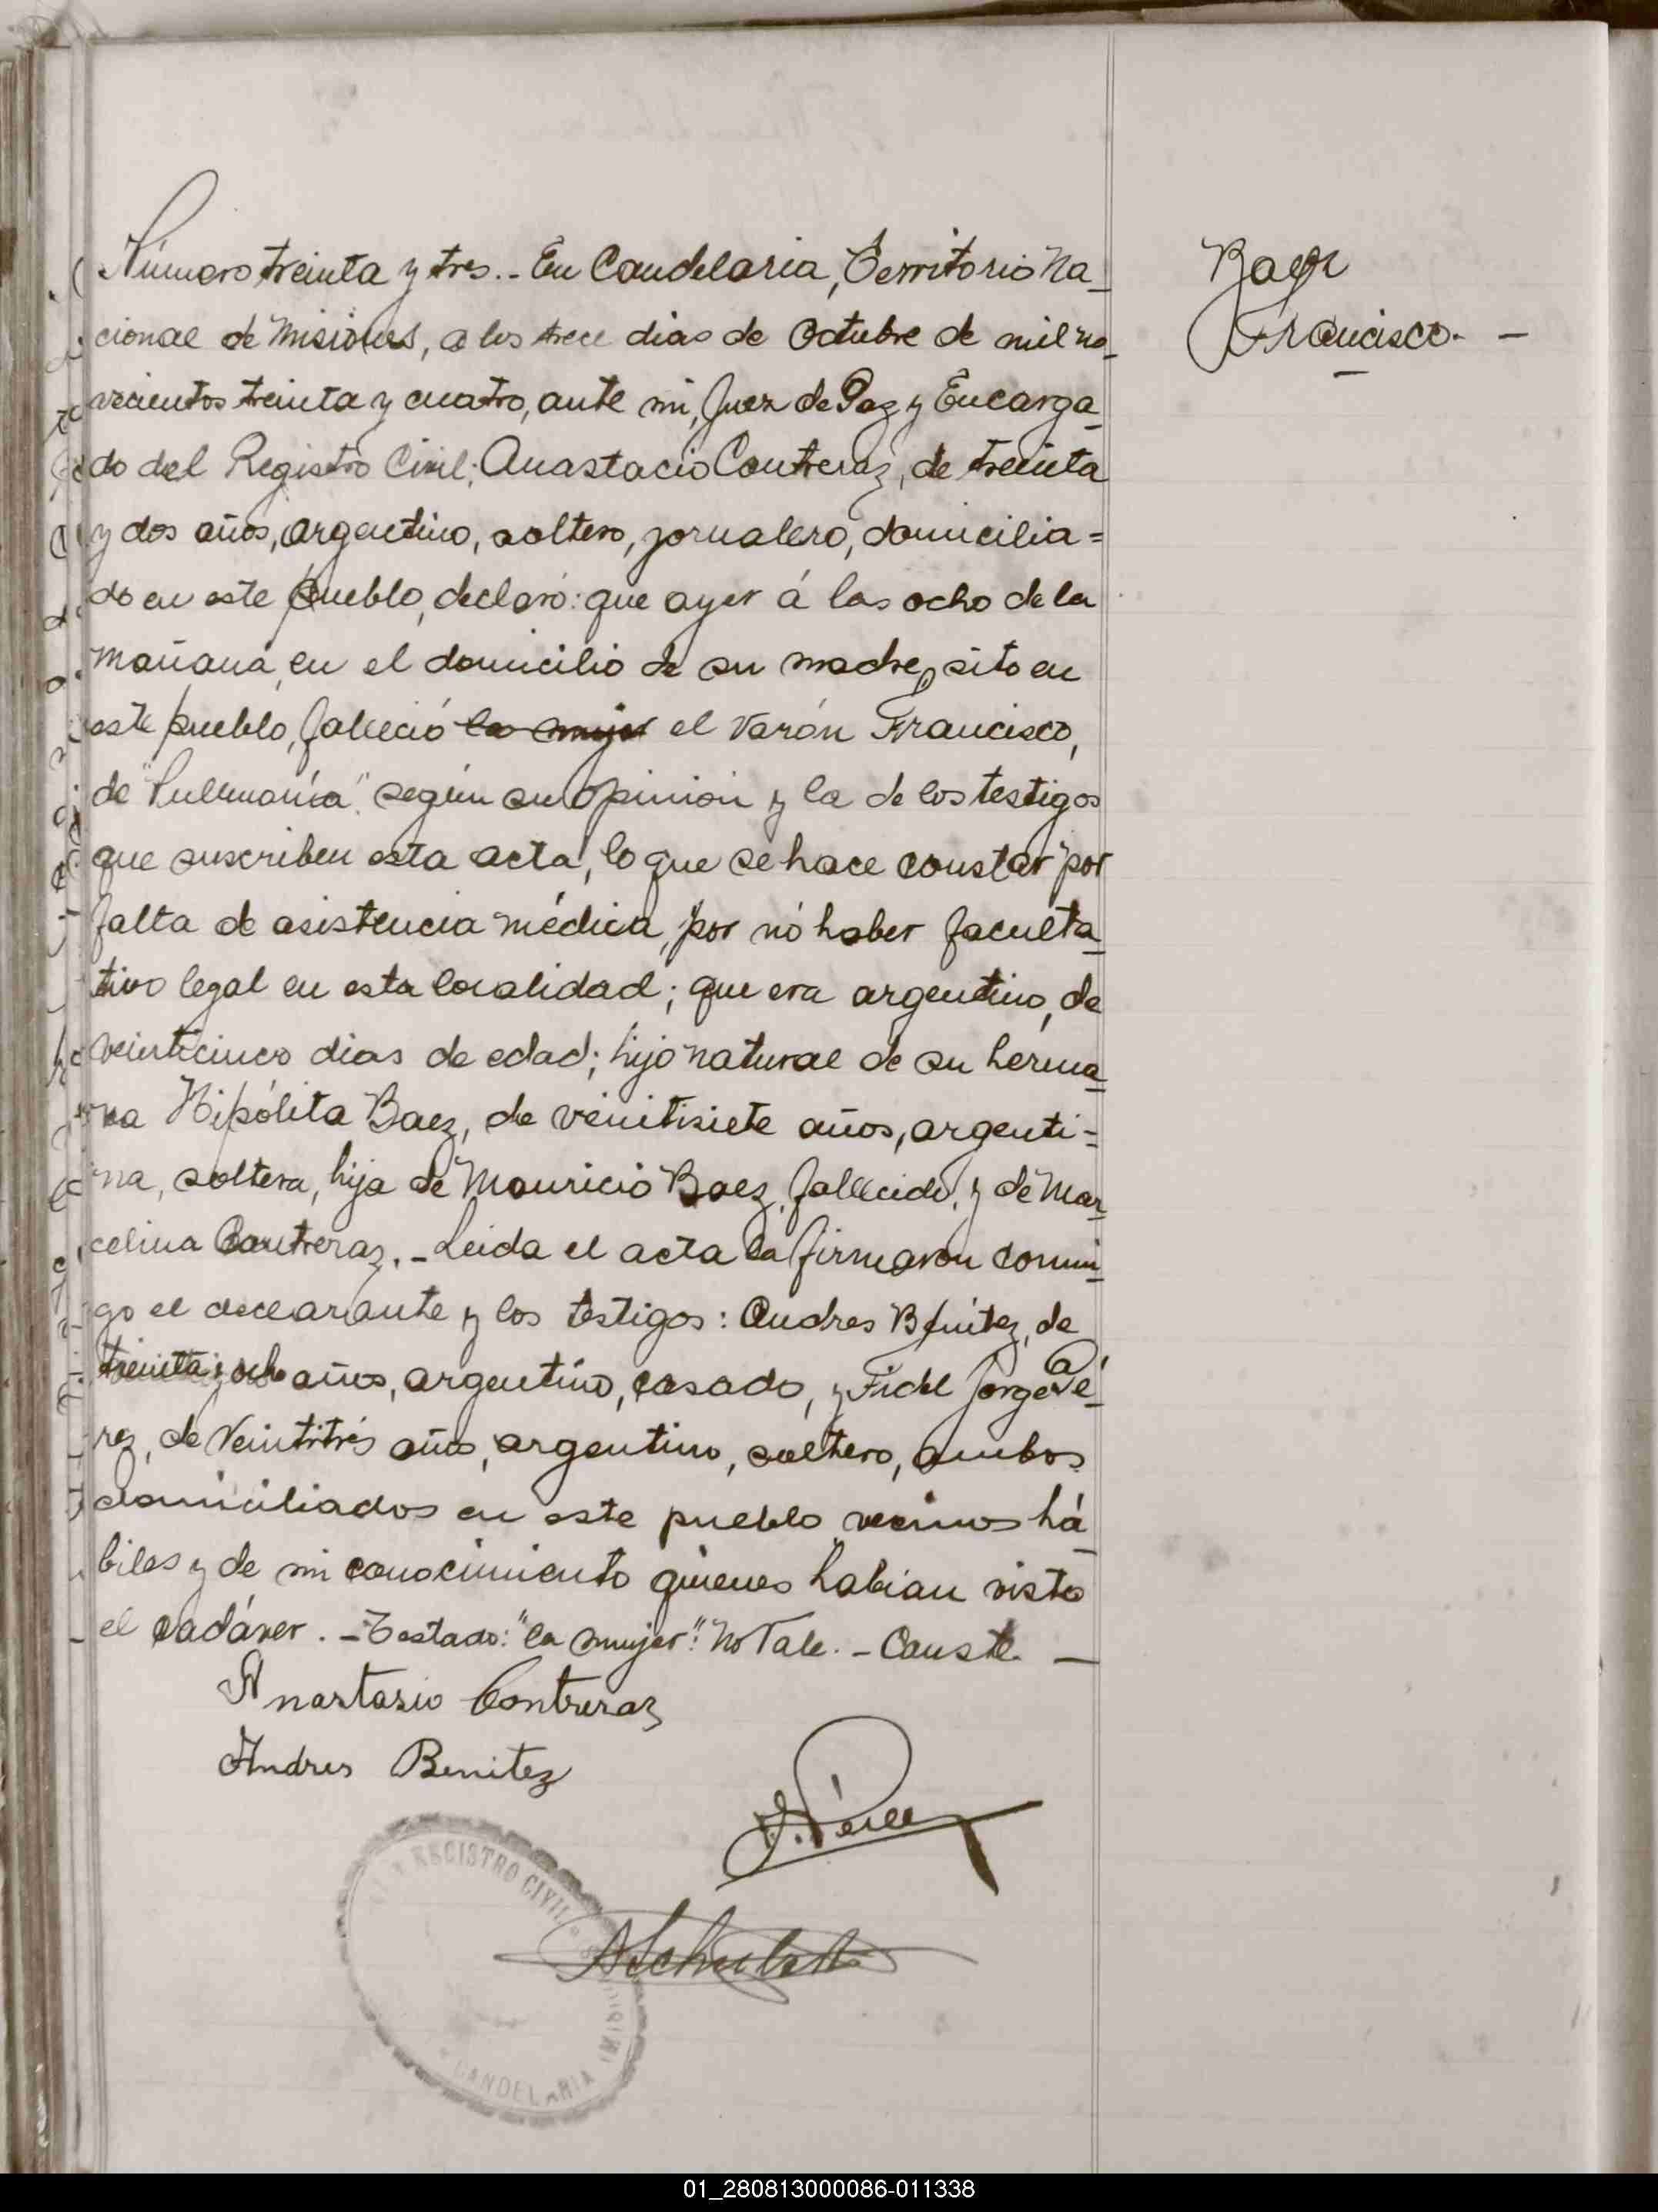 Número treinta y tres.- En Candelaria, Territorio Na_
cional de Misiones, a los trece dias de Octubre de mil no_
vecientos treinta y cuatro, ante mi, Juez de Paz y Encarga_
do del Registro Civil; Anastacio Contreraz, de treinta
y dos años, argentino, soltero, jornalero, domicilia=
do en este pueblo, declaró: que ayer á las ocho de la
mañana, en el domicilio de su madre, sito en
este pueblo, falleció la mujer el varón Francisco,
de "Pulmonía" según su opinión y la de los testigos
que suscriben esta acta, lo que se hace constar por
falta de asistencia médica, por nó haber faculta_
tivo legal en esta localidad; que era argentino, de
veinticinco dias de edad; hijo natural de su herma_
na Hipólita Baez, de veintisiete años, argenti=
na, soltera, hija de Mauricio Baez, fallecido, y de Mar_
celina Contreraz.- Leida el acta la firmaron conmi_
go el declarante y los testigos: Andres Benítez, de
treinta y ocho años, argentino, casado, y Fidel Jorge Pé_
rez, de veintitrés años, argentino, soltero, ambos
domiciliados en este pueblo vecinos há_
biles y de mi conocimiento quienes habian visto
el cadáver.- Testado: "la mujer": No Vale.- Conste. —
Baez
Francisco. —
Anastasio Contreraz
Andres Benitez
F. Pérez
REGISTRO CIVIL
CANDELARIA
01_280813000086-011338